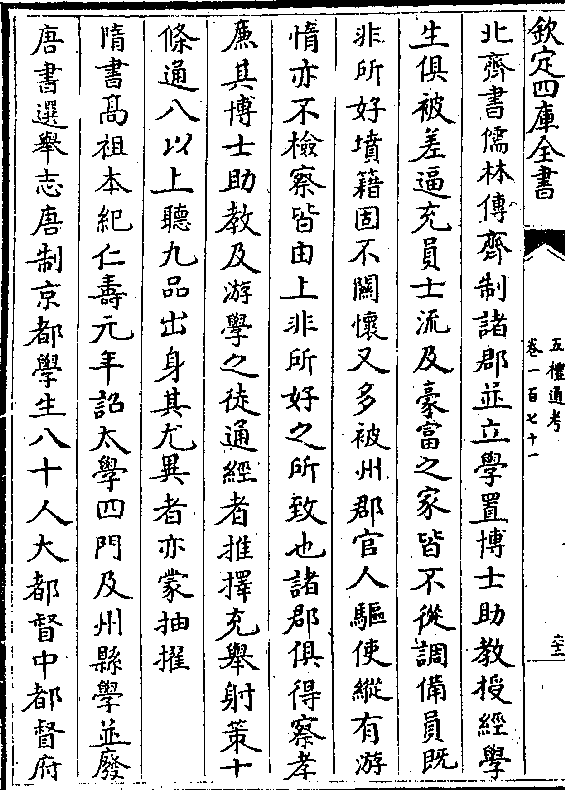 欽定四庫全書
五禮通考
卷一百七十一
北齊書儒林傳齊制諸郡並立學置博士助教授經學
生俱被差逼充員士流及豪富之家皆不從調備員既
非所好墳籍固不關懷又多被州郡官人驅使縱有游
惰亦不檢察皆由上非所好之所致也諸郡俱得察孝
廉其博士助教及游學之徒通經者推擇充舉射策十
條通八以上聽九品出身其尤異者亦蒙抽擢
隋書髙祖本紀仁壽元年詔太學四門及州縣學並廢
唐書選舉志唐制京都學生八十人大都督中都督府